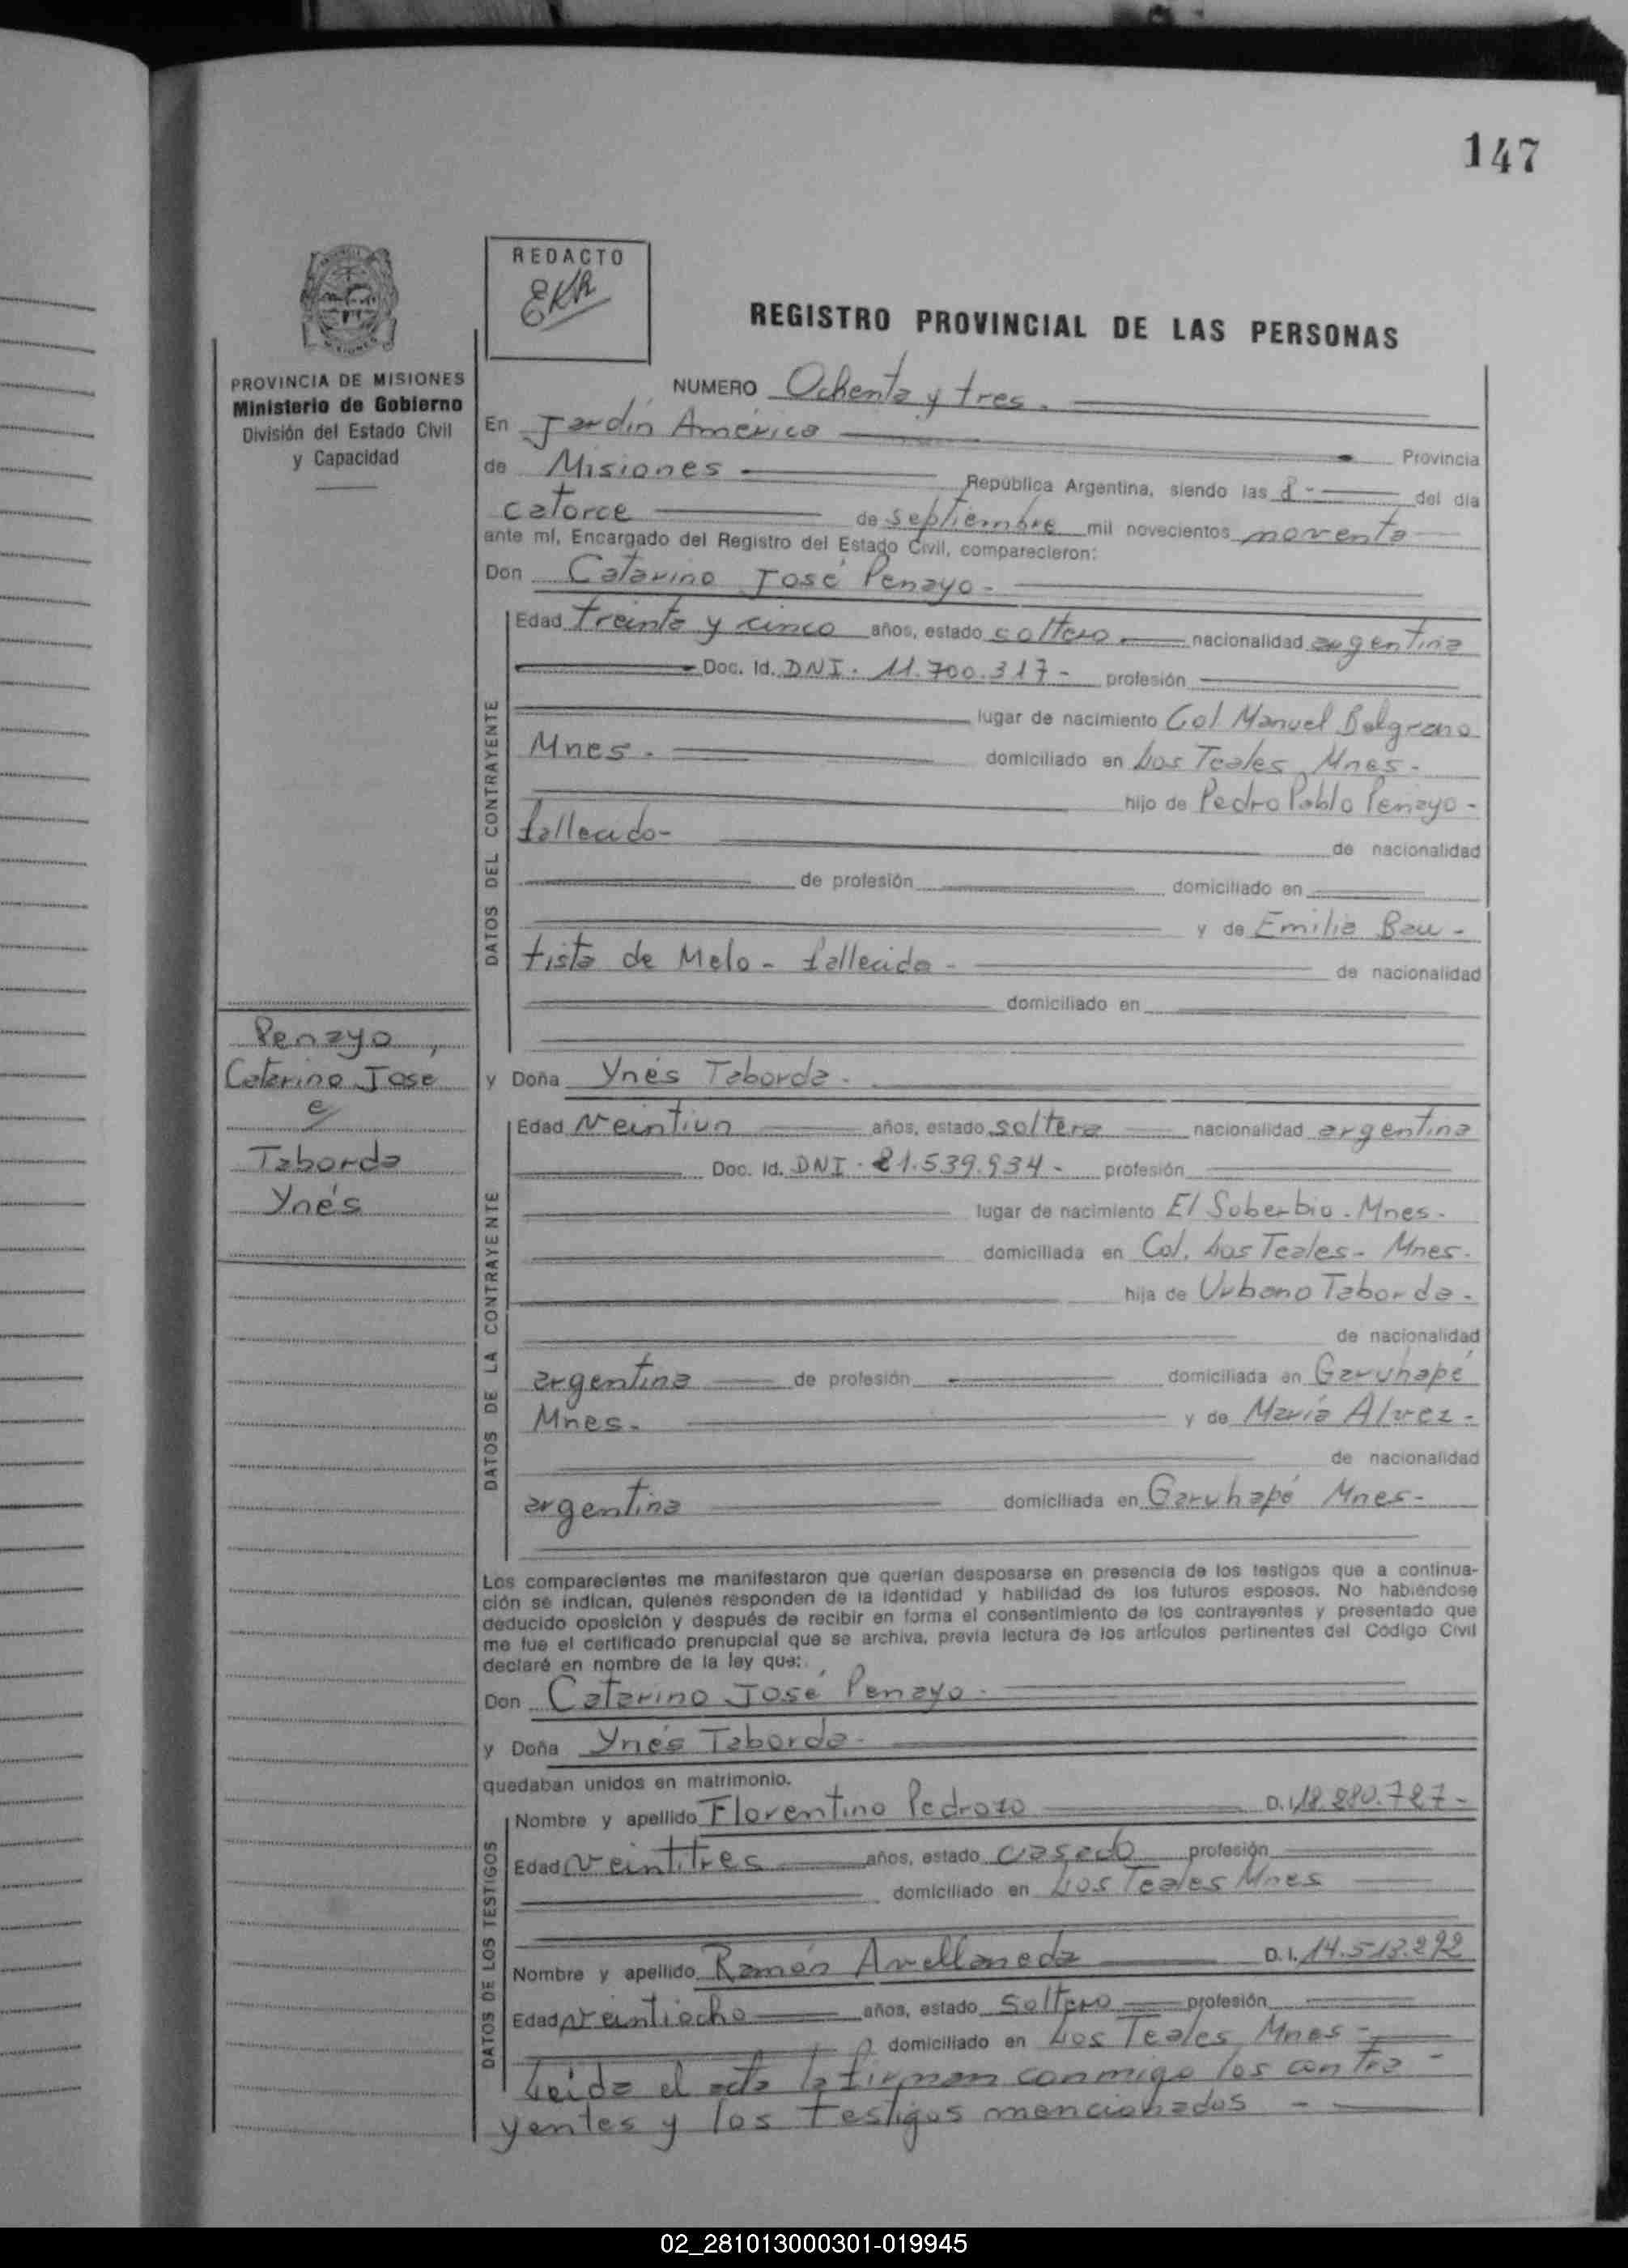 147
REDACTO
EKR
REGISTRO PROVINCIAL DE LAS PERSONAS
PROVINCIA DE MISIONES
Ministerio de Gobierno
División del Estado Civil
y Capacidad
NUMERO Ochenta y tres.
En Jardín América Provincia
de Misiones República Argentina, siendo las 8 - del día
catorce de septiembre mil novecientos noventa
ante mí, Encargado del Registro del Estado Civil, comparecieron:
Don Catarino José Penayo -
DATOS DEL CONTRAYENTE
Edad treinta y cinco años, estado soltero nacionalidad argentina
Doc. Id. DNI. 11.700.317 - profesión
lugar de nacimiento Col Manuel Belgrano
Mnes - domiciliado en Los Teales Mnes -
hijo de Pedro Pablo Penayo -
fallecido - de nacionalidad
de profesión domiciliado en
y de Emilia Bau -
tista de Melo - fallecida - de nacionalidad
domiciliado en
Penayo,
Catarino Jose
e/
Taborda
Ynés
y Doña Ynés Taborda -
DATOS DE LA CONTRAYENTE
Edad veintiun años, estado soltera nacionalidad argentina
Doc. Id. DNI - 21.539.934 - profesión
lugar de nacimiento El Soberbio - Mnes -
domiciliada en Col. Los Teales - Mnes.
hija de Urbano Taborda -
de nacionalidad
argentina de profesión domiciliada en Garuhapé
Mnes - y de María Alvez -
de nacionalidad
argentina domiciliada en Garuhapé Mnes -
Los comparecientes me manifestaron que querían desposarse en presencia de los testigos que a continua-
ción se indican, quienes responden de la identidad y habilidad de los futuros esposos. No habiéndose
deducido oposición y después de recibir en forma el consentimiento de los contrayentes y presentado que
me fue el certificado prenupcial que se archiva, previa lectura de los artículos pertinentes del Código Civil
declaré en nombre de la ley que:
Don Catarino José Penayo -
y Doña Ynés Taborda -
quedaban unidos en matrimonio.
DATOS DE LOS TESTIGOS
Nombre y apellido Florentino Pedrozo D. I. 18.280.787 -
Edad veintitres años, estado casado profesión
domiciliado en Los Teales Mnes
Nombre y apellido Ramón Avellaneda D. I. 14.513.292
Edad veintiocho años, estado soltero profesión
domiciliado en Los Teales Mnes -
Leída el acta la firman conmigo los contra -
yentes y los testigos mencionados -
02_281013000301-019945